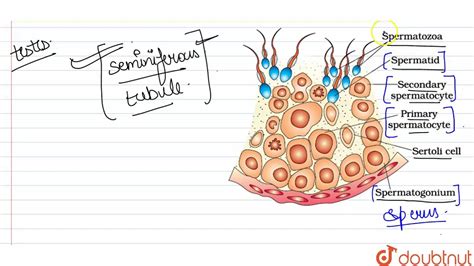 testis
seminiferous
tubule.
Spermatozoa
Spermatid
Secondary
spermatocyte
Primary
spermatocyte
Sertoli cell
Spermatogonium
doubtnut